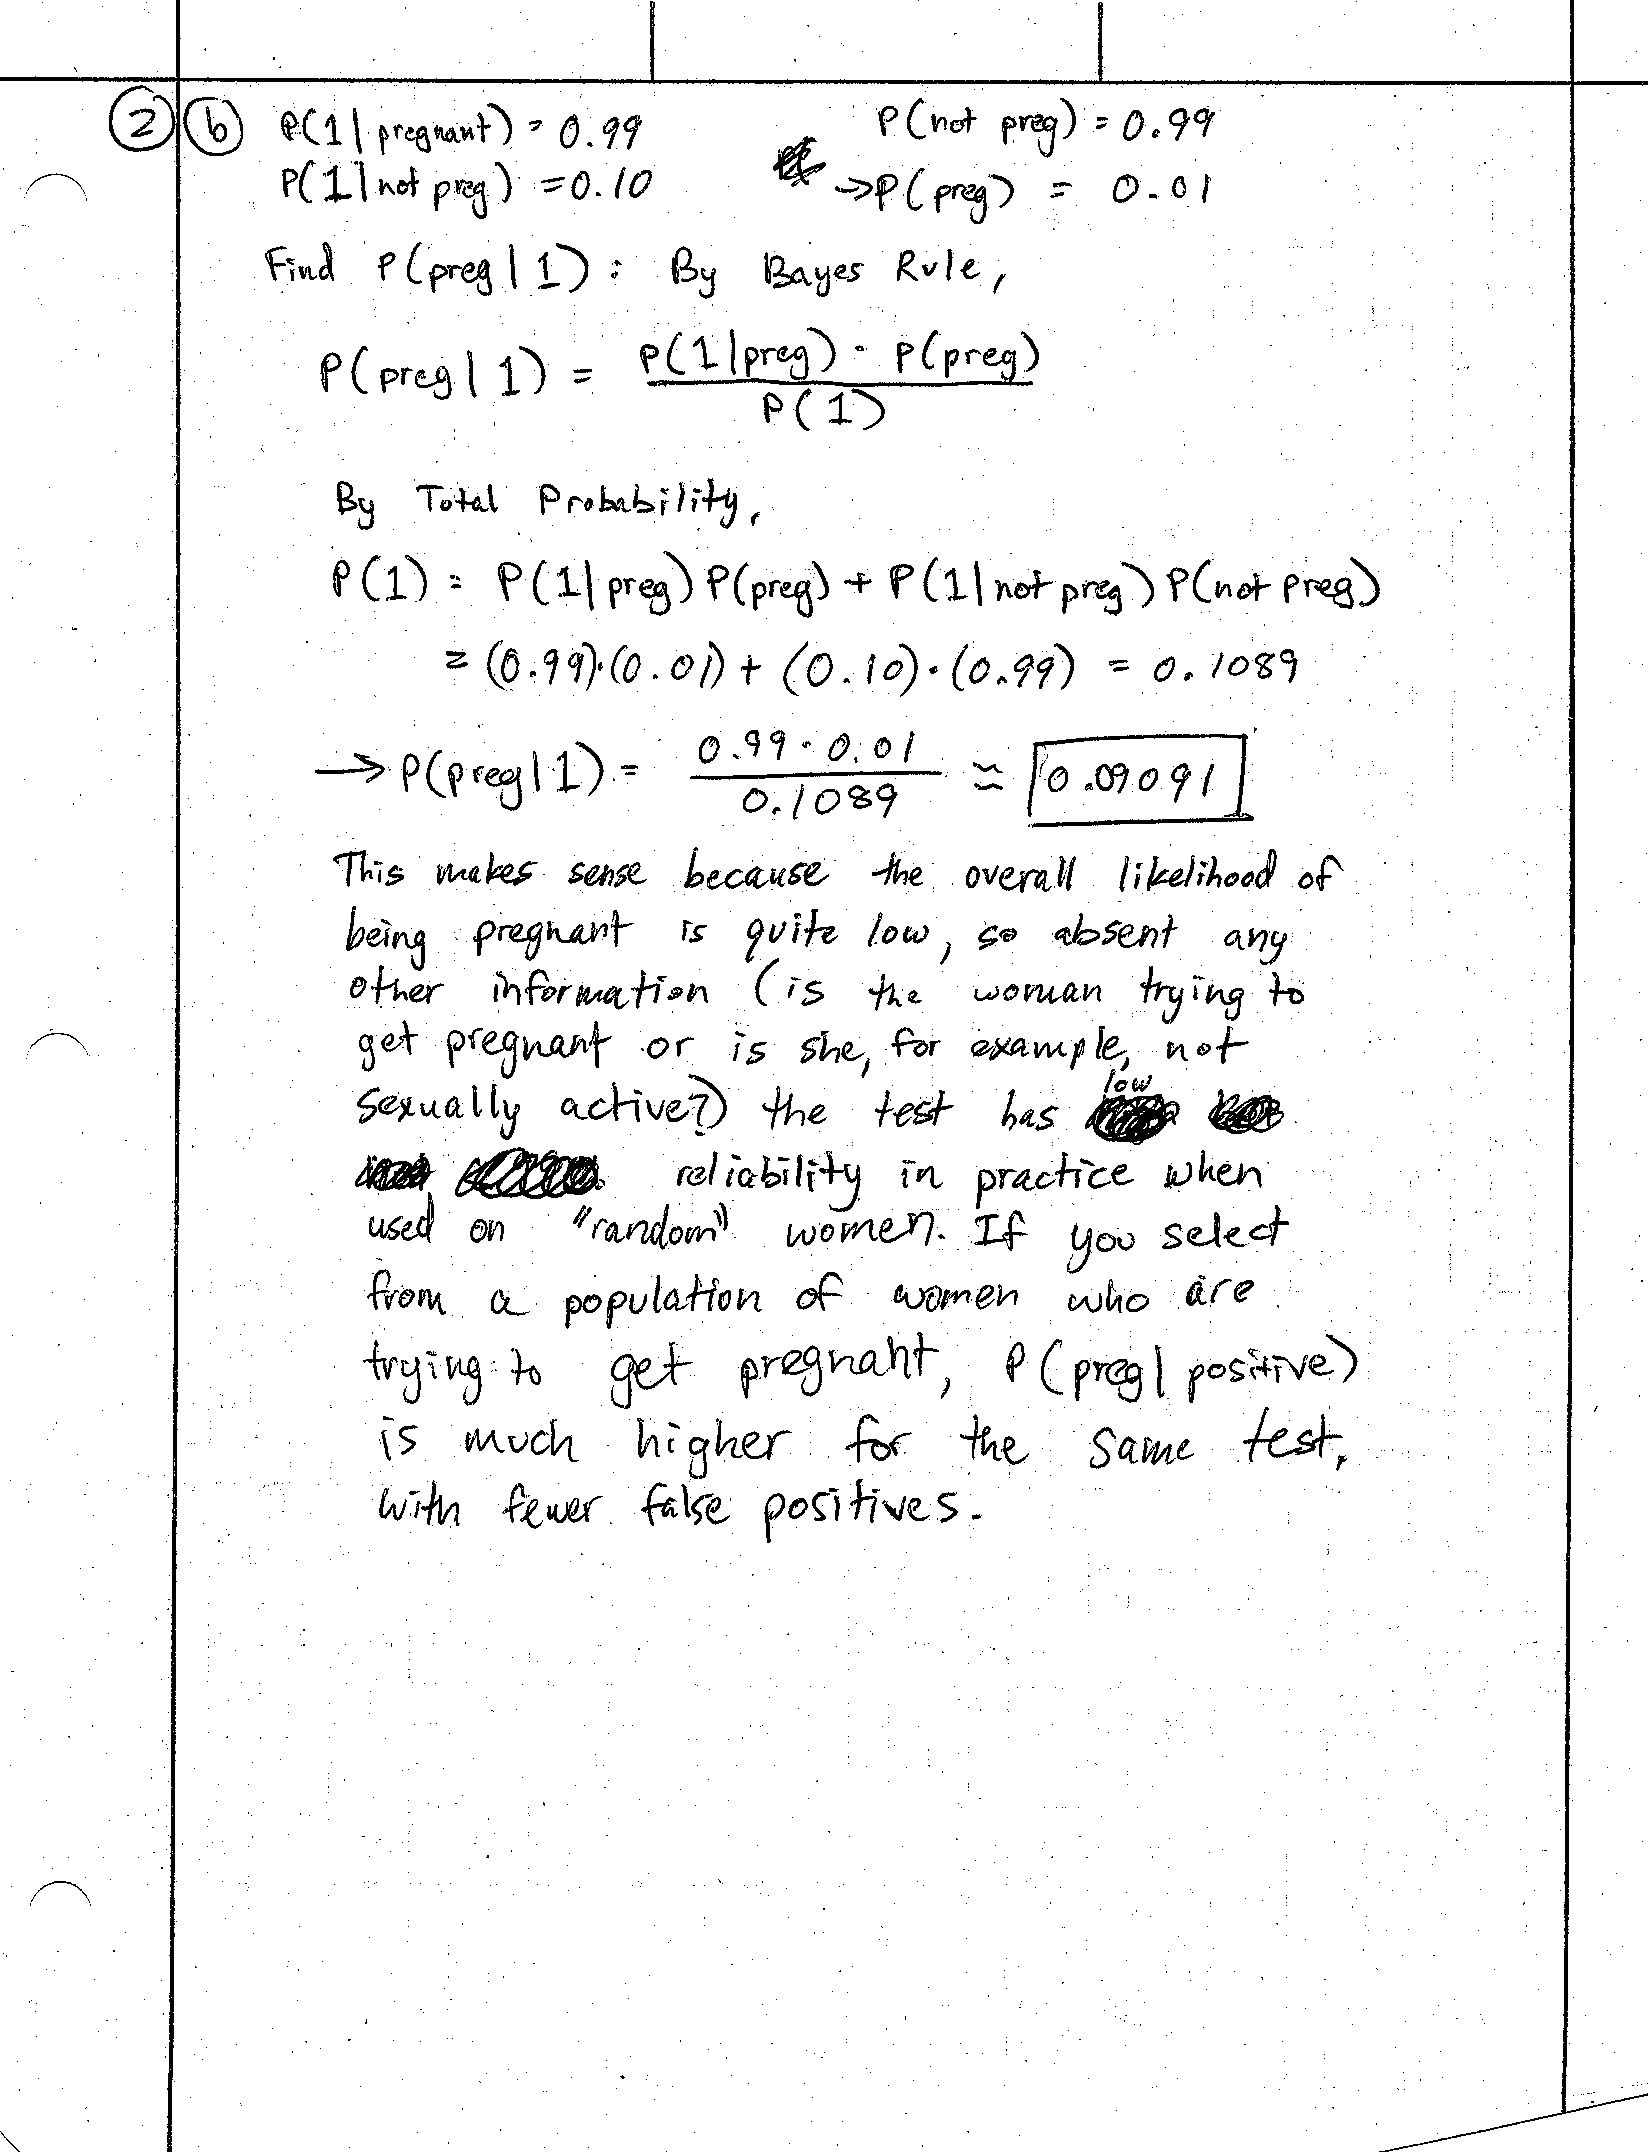 2 b P(1 | pregnant) = 0.99 P(not preg) = 0.99
P(1 | not preg) = 0.10 → P(preg) = 0.01
Find P(preg | 1) : By Bayes Rule,
P(preg | 1) = P(1 | preg) · P(preg)
P(1)
By Total Probability,
P(1) = P(1 | preg) P(preg) + P(1 | not preg) P(not preg)
= (0.99)·(0.01) + (0.10)·(0.99) = 0.1089
→ P(preg | 1) = 0.99 · 0.01 ≈ 0.09091
0.1089
This makes sense because the overall likelihood of
being pregnant is quite low, so absent any
other information (is the woman trying to
get pregnant or is she, for example, not
sexually active?) the test has low
reliability in practice when
used on "random" women. If you select
from a population of women who are
trying to get pregnant, P(preg | positive)
is much higher for the same test,
with fewer false positives.